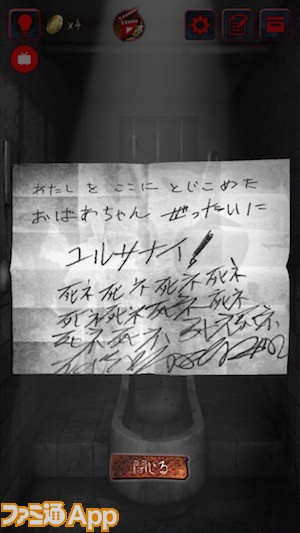 x4
わたしを ここに とじこめた
おばあちゃん ぜったいに
ユルサナイ!
死ネ死ネ死ネ死ネ
死ネ死ネ死ネ死ネ
死ネ死ネ 死ネ死ネ
閉じる
ファミ通App